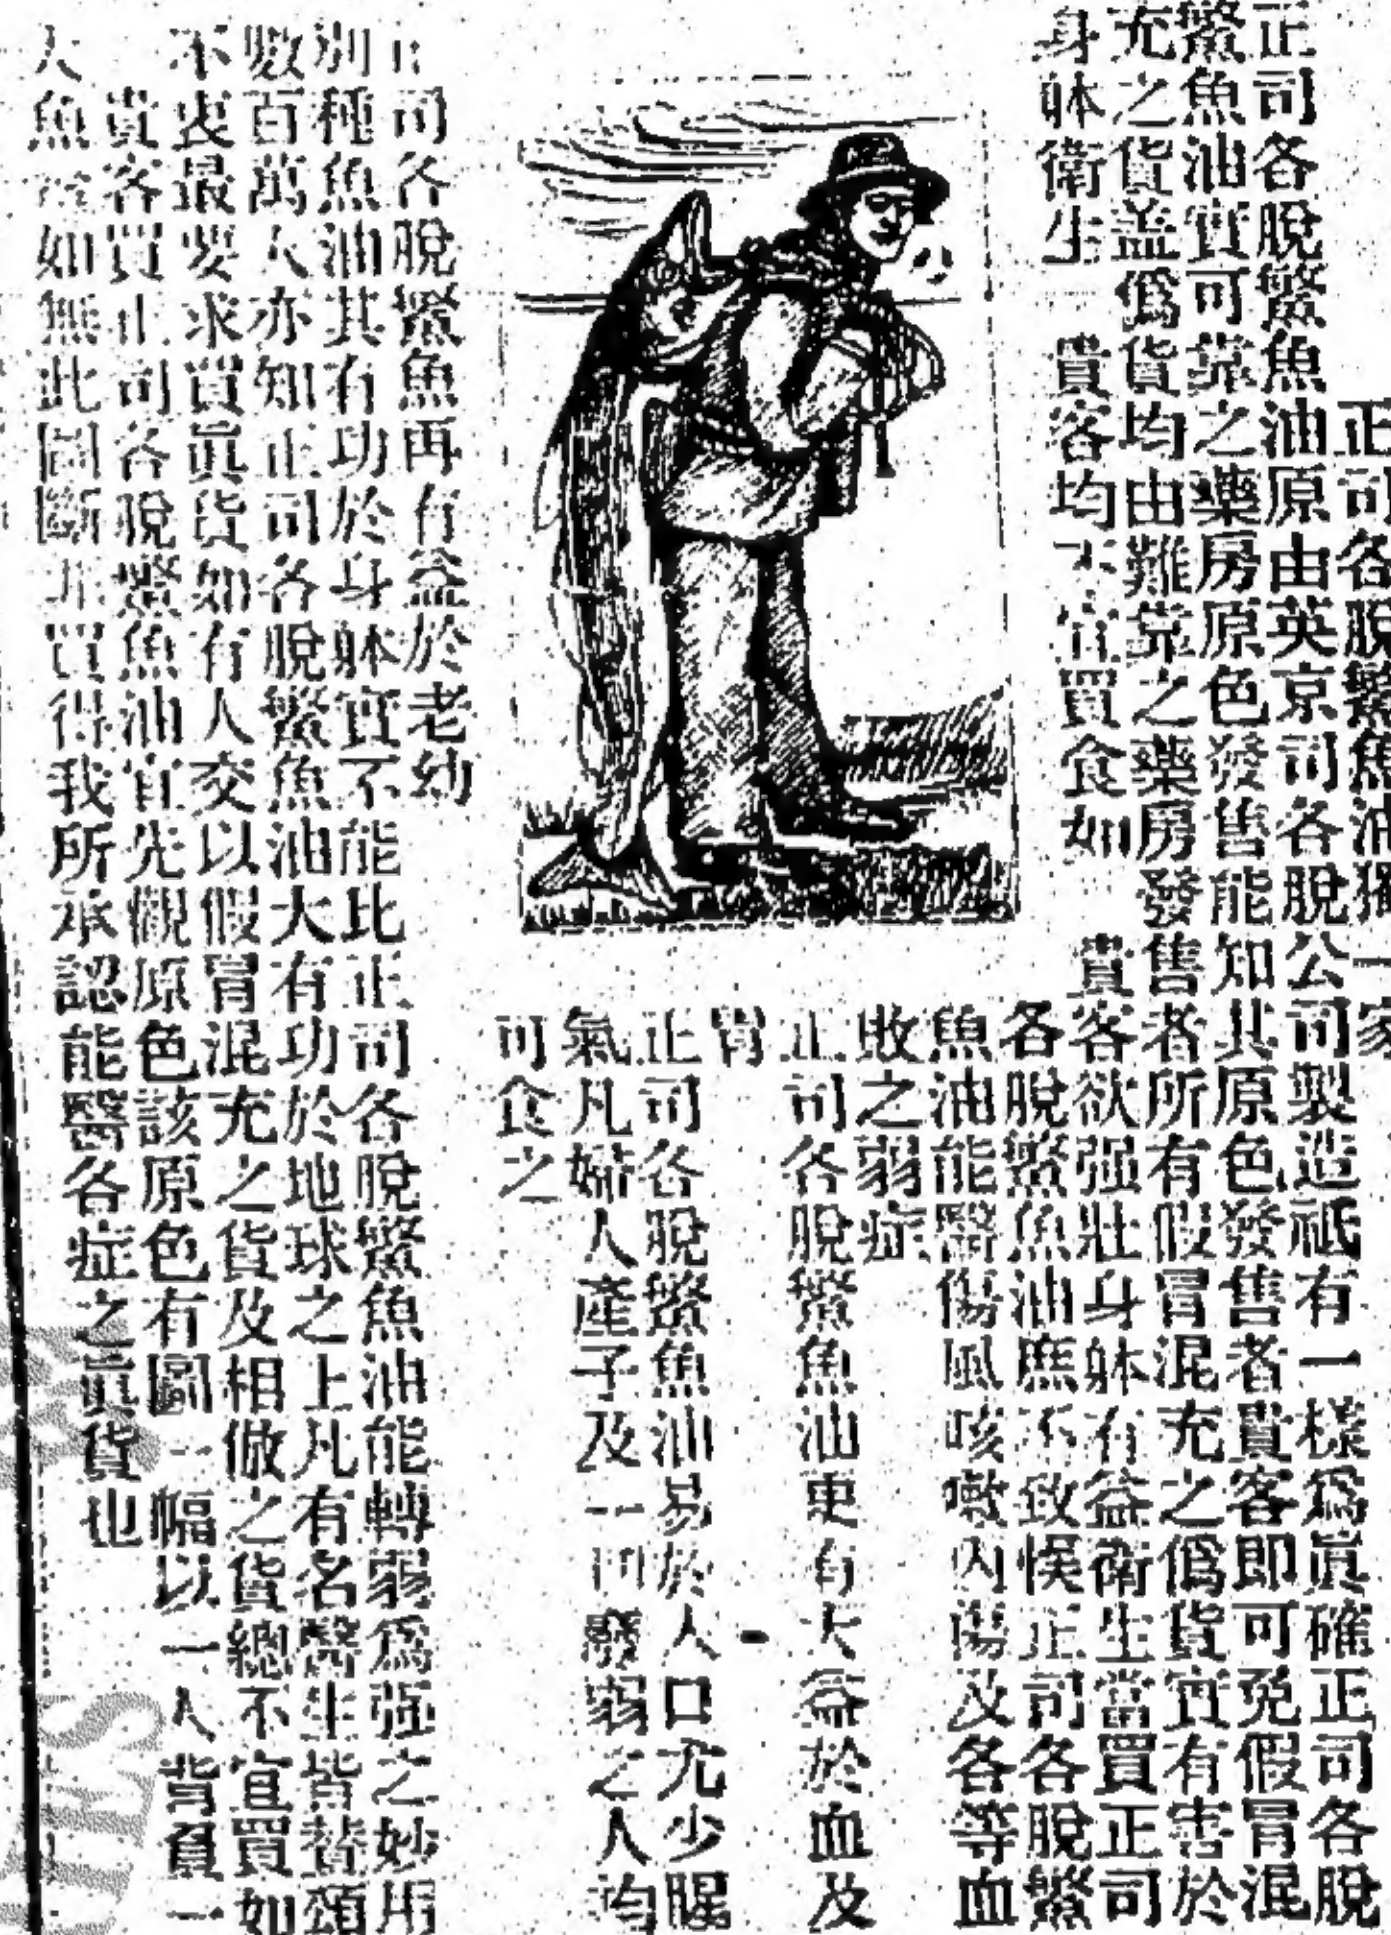 正司各脫鰵魚油獨一家
正司各脫鰵魚油原由英京司各脫公司製造祗有一樣爲眞確正司各脫
鰵魚油實可靠之藥房原色發售能知其原色發售者貴客即可免假冒混
充之貨盖僞貨均由難靠之藥房發售者所有假冒混充之僞貨實有害於
身躰衛生 貴客均不宜買食如 貴客欲强壯身躰有益衛生當買正司
各脫鰵魚油庶不致悞正司各脫鰵
魚油能醫傷風咳嗽內傷及各等血
敗之弱症
正司各脫鰵魚油更有大益於血及
胃
正司各脫鰵魚油易於人口尤少腥
氣凡婦人產子及一切發弱之人均
可食之
正司各脫鰵魚再有益於老幼
別種魚油其有功於身躰實不能比正司各脫鰵魚油能轉弱爲强之妙用
數百萬人亦知正司各脫鰵魚油大有功於地球之上凡有名醫生皆贊頌
不衰最要求買眞貨如有人交以假冒混充之貨及相倣之貨總不宜買如
貴客買正司各脫鰵魚油宜先觀原色該原色有圖一幅以一人背負一
大魚 如無此圖斷非買得我所承認能醫各症之眞貨也